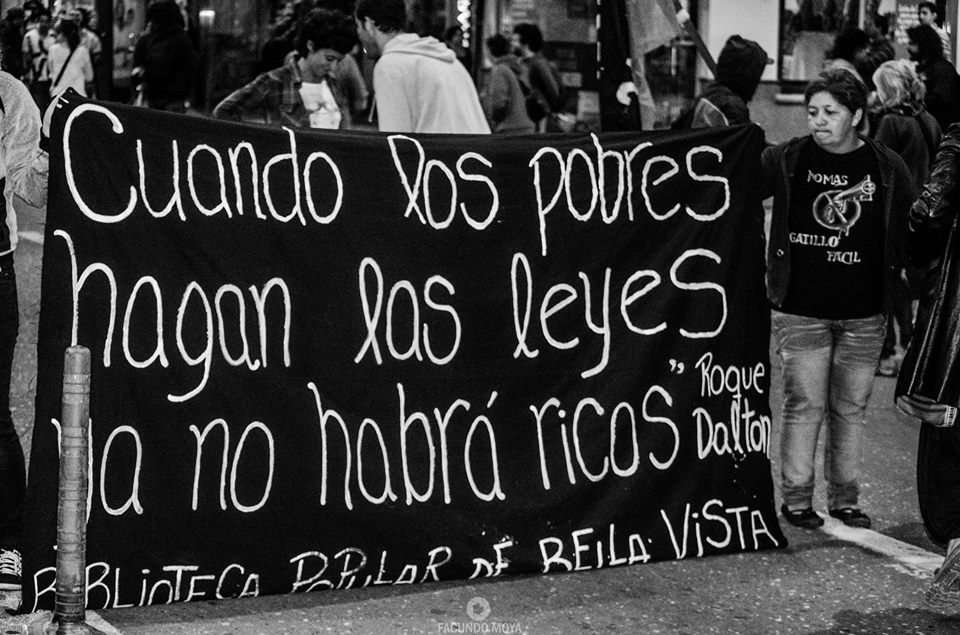 Cuando los pobres
hagan las leyes
ya no habrá ricos"
Roque
Dalton
BiBLiOTECA POPULAR DE BELLA ViSTA
NO MAS
GATILLO
FACIL
FACUNDO MOYA